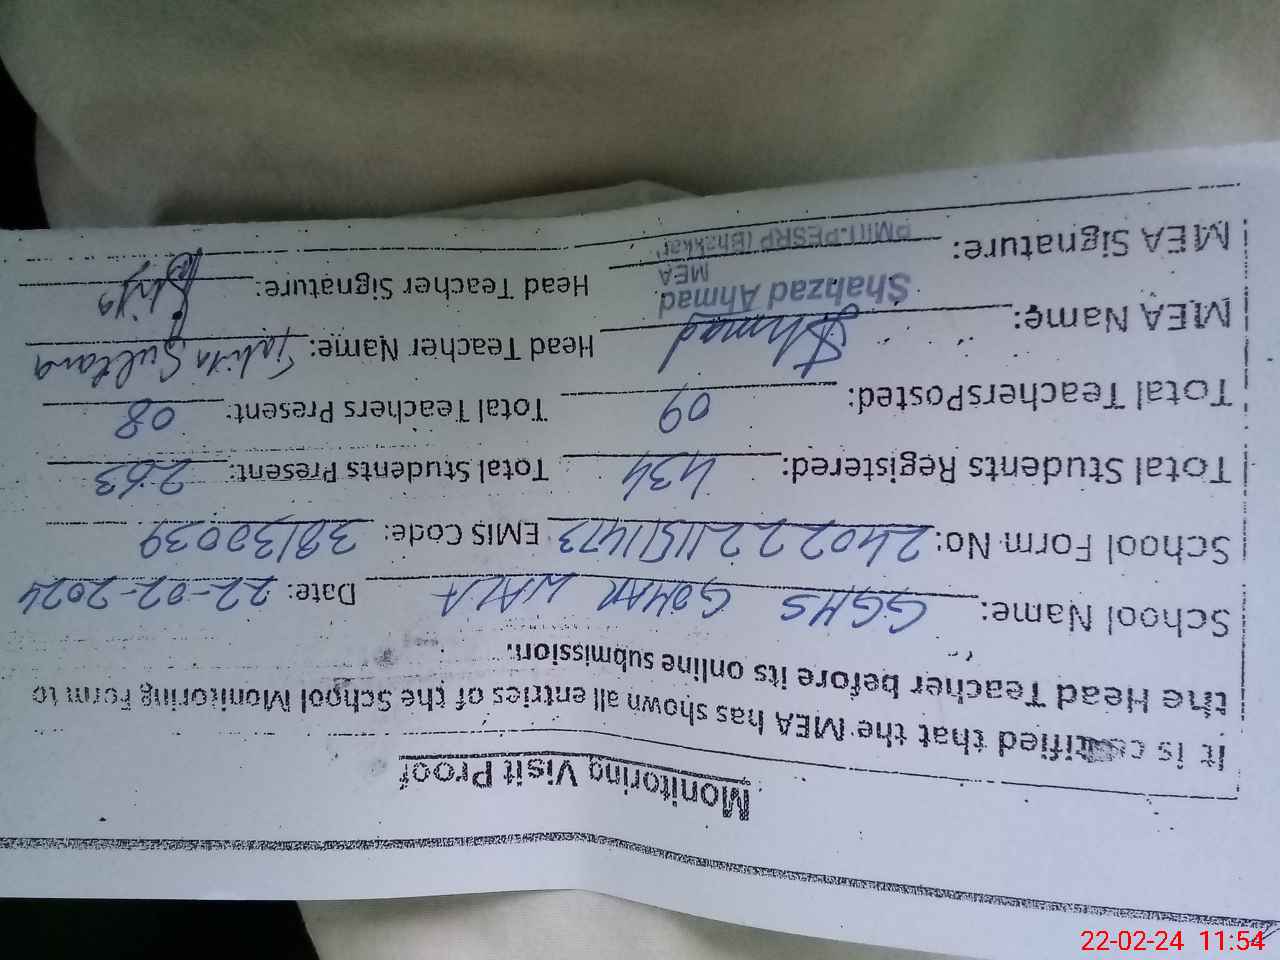 Monitoring Visit Proof
It is certified that the MEA has shown all entries of the School Monitoring Form to
the Head Teacher before its online submission.
School Name: GGHS GOHAR WALA Date: 22-02-2024
School Form No: 24022211511473 EMIS Code: 38130039
Total Students Registered: 434 Total Students Present: 263
Total TeachersPosted: 09 Total Teachers Present: 08
MEA Name: Ahmad Head Teacher Name: Sultana
Shahzad Ahmad
MEA
MEA Signature: PMIU-PESRP (Bhakkar) Head Teacher Signature:
22-02-24 11:54